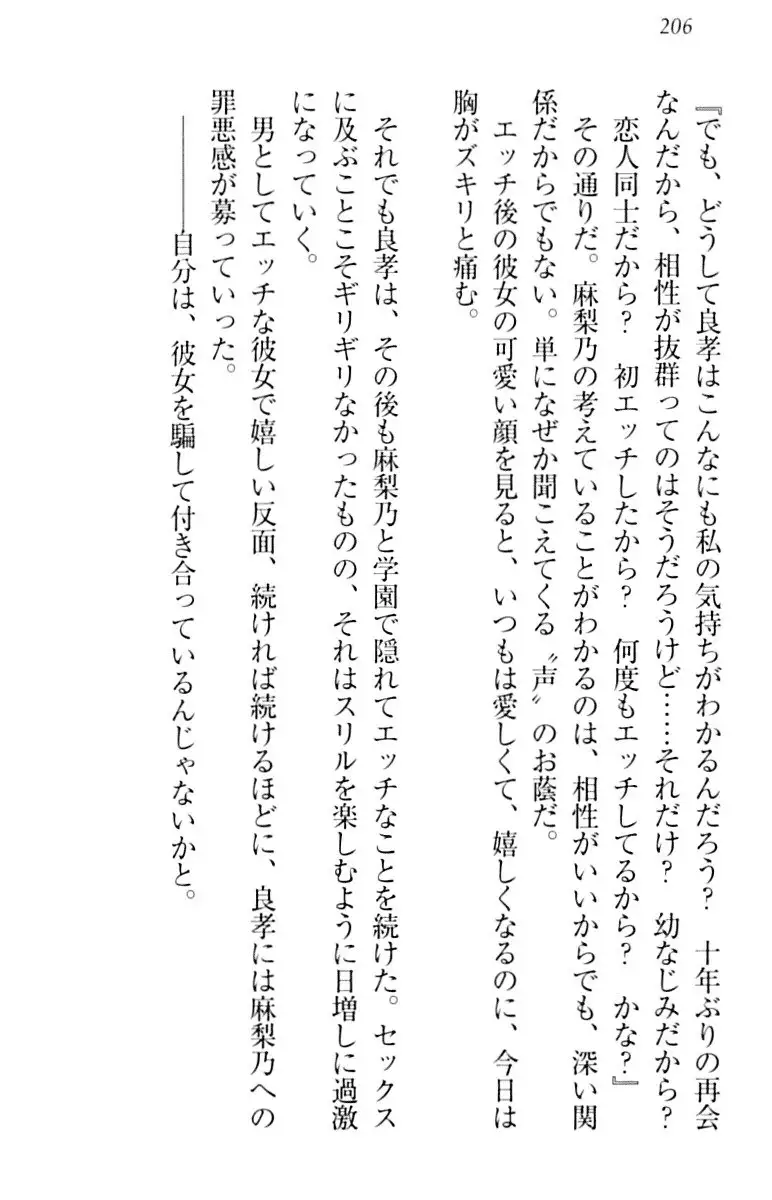 206
『でも、どうして良孝はこんなにも私の気持ちがわかるんだろう？　十年ぶりの再会
なんだから、相性が抜群ってのはそうだろうけど……それだけ？　幼なじみだから？
恋人同士だから？　初エッチしたから？　何度もエッチしてるから？　かな？』
その通りだ。麻梨乃の考えていることがわかるのは、相性がいいからでも、深い関
係だからでもない。単になぜか聞こえてくる〝声〟のお蔭だ。
エッチ後の彼女の可愛い顔を見ると、いつもは愛しくて、嬉しくなるのに、今日は
胸がズキリと痛む。
それでも良孝は、その後も麻梨乃と学園で隠れてエッチなことを続けた。セックス
に及ぶことこそギリギリなかったものの、それはスリルを楽しむように日増しに過激
になっていく。
男としてエッチな彼女で嬉しい反面、続ければ続けるほどに、良孝には麻梨乃への
罪悪感が募っていった。
――――自分は、彼女を騙して付き合っているんじゃないかと。